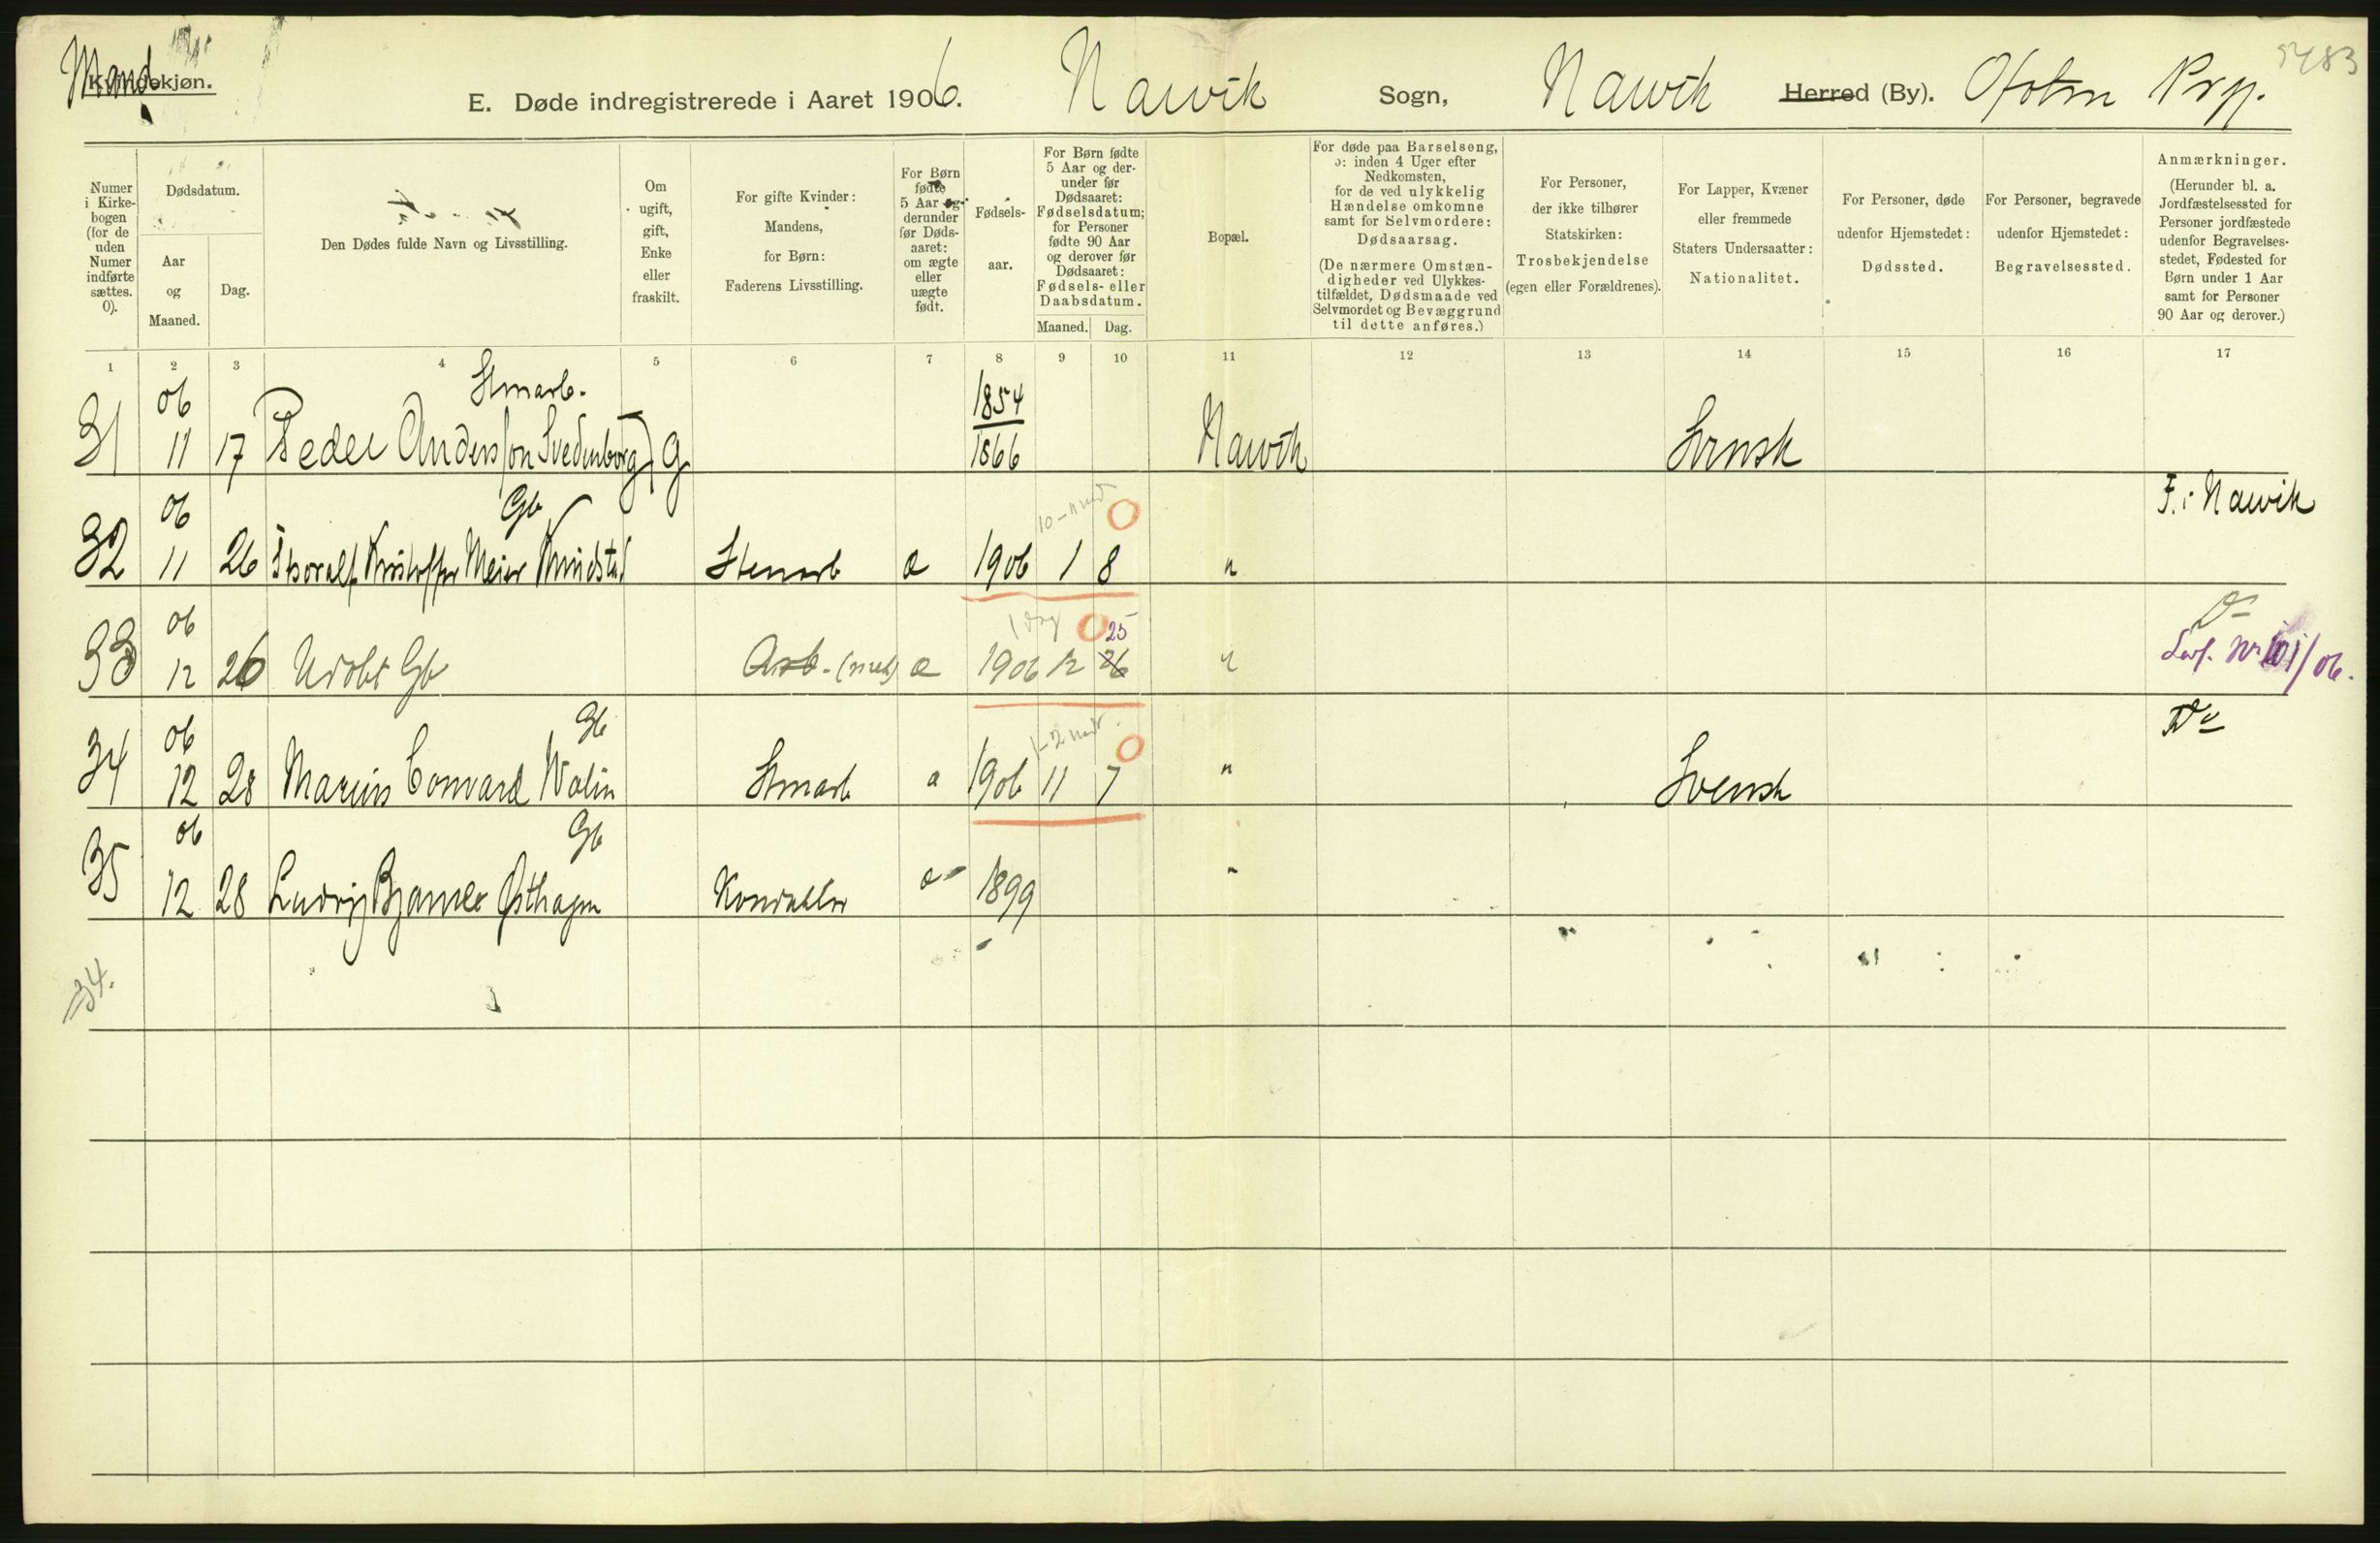 Mand
Kvindekjøn.
E. Døde indregistrerede i Aaret 1906. Narvik Sogn, Narvik Herred (By). Ofoten Prgj.
5483
Numer
i Kirke-
bogen
(for de
uden
Numer
indførte
sættes.
0).
Dødsdatum.
Aar
og
Maaned.
Dag.
Den Dødes fulde Navn og Livsstilling.
Om
ugift,
gift,
Enke
eller
fraskilt.
For gifte Kvinder:
Mandens,
for Børn:
Faderens Livsstilling.
For Børn
fødte
5 Aar og
derunder
før Døds-
aaret:
om ægte
eller
uægte
født.
Fødsels-
aar.
For Børn fødte
5 Aar og der-
under før
Dødsaaret:
Fødselsdatum;
for Personer
fødte 90 Aar
og derover før
Dødsaaret:
Fødsels- eller
Daabsdatum.
Maaned. Dag.
Bopæl.
For døde paa Barselseng,
ɔ: inden 4 Uger efter
Nedkomsten,
for de ved ulykkelig
Hændelse omkomne
samt for Selvmordere:
Dødsaarsag.
(De nærmere Omstæn-
digheder ved Ulykkes-
tilfældet, Dødsmaade ved
Selvmordet og Bevæggrund
til dette anføres.)
For Personer,
der ikke tilhører
Statskirken:
Trosbekjendelse
(egen eller Forældrenes).
For Lapper, Kvæner
eller fremmede
Staters Undersaatter:
Nationalitet.
For Personer, døde
udenfor Hjemstedet:
Dødssted.
For Personer, begravede
udenfor Hjemstedet:
Begravelsessted.
Anmærkninger.
(Herunder bl. a.
Jordfæstelsessted for
Personer jordfæstede
udenfor Begravelses-
stedet, Fødested for
Børn under 1 Aar
samt for Personer
90 Aar og derover.)
1 2 3 4 5 6 7 8 9 10 11 12 13 14 15 16 17
06 Stenarb. 1854
31 11 17 Peder Andersson Svedenborg g 1866 Narvik Svensk
06 Gb 10-11 md F. i Narvik
32 11 26 Thoralf Kristoffer Meier Stenarb æ 1906 1 8 "
06 1 dag 25 Do
33 12 26 Udøbt Gb Arb. æ 1906 12 26 " /06.
06 Gb 1-2 md. Do
34 12 28 Marius Conrard Walin Stenarb æ 1906 11 7 " Svensk
06 Gb
35 12 28 Ludvig Bjarne Østhagen Konduktør æ 1899 "
34.